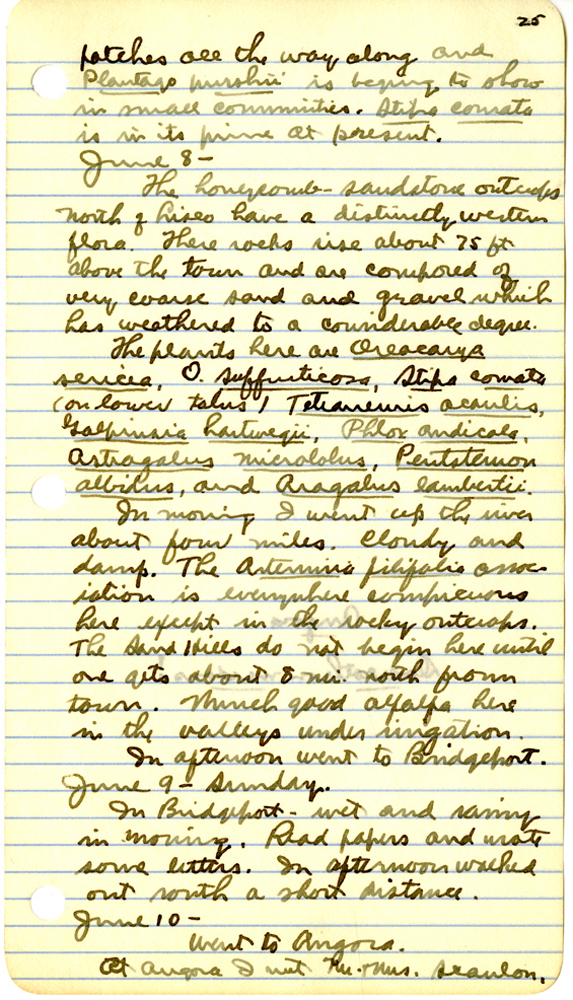 25
patches all the way along and
Plantago purshii is beging to show
in small communities. Stipa comata
is in its prime at present.
June 8 -
The honeycomb- sandstone outcrops
north of Lisco have a distinctly western
flora. These rocks rise about 75 ft
above the town and are composed of
very coarse sand and gravel which
has weathered to a considerable degree.
The plants here are Oreocarya
sericea, O. suffruticosa, Stipa comata
(on lower talus) Tetraneuris acaulis,
Galpinsia hartwegii, Phlox andicola,
Astragalus microlobus, Pentstemon
albidus, and Aragalus lambertii.
In morning I went up the river
about four miles. Cloudy and
damp. The Artemisia filifolia assoc-
iation is everywhere conspicuous
here except in the rocky outcrops.
The Sand Hills do not begin here until
one gets about 8 mi. north from
town. Much good alfalfa here
in the valleys under irrigation.
In afternoon went to Bridgeport.
June 9 - Sunday.
In Bridgeport - wet and rainy
in morning. Read papers and wrote
some letters. In afternoon walked
out south a short distance.
June 10 -
Went to Angora.
At Angora I met Mr. + Mrs. Scanlon.